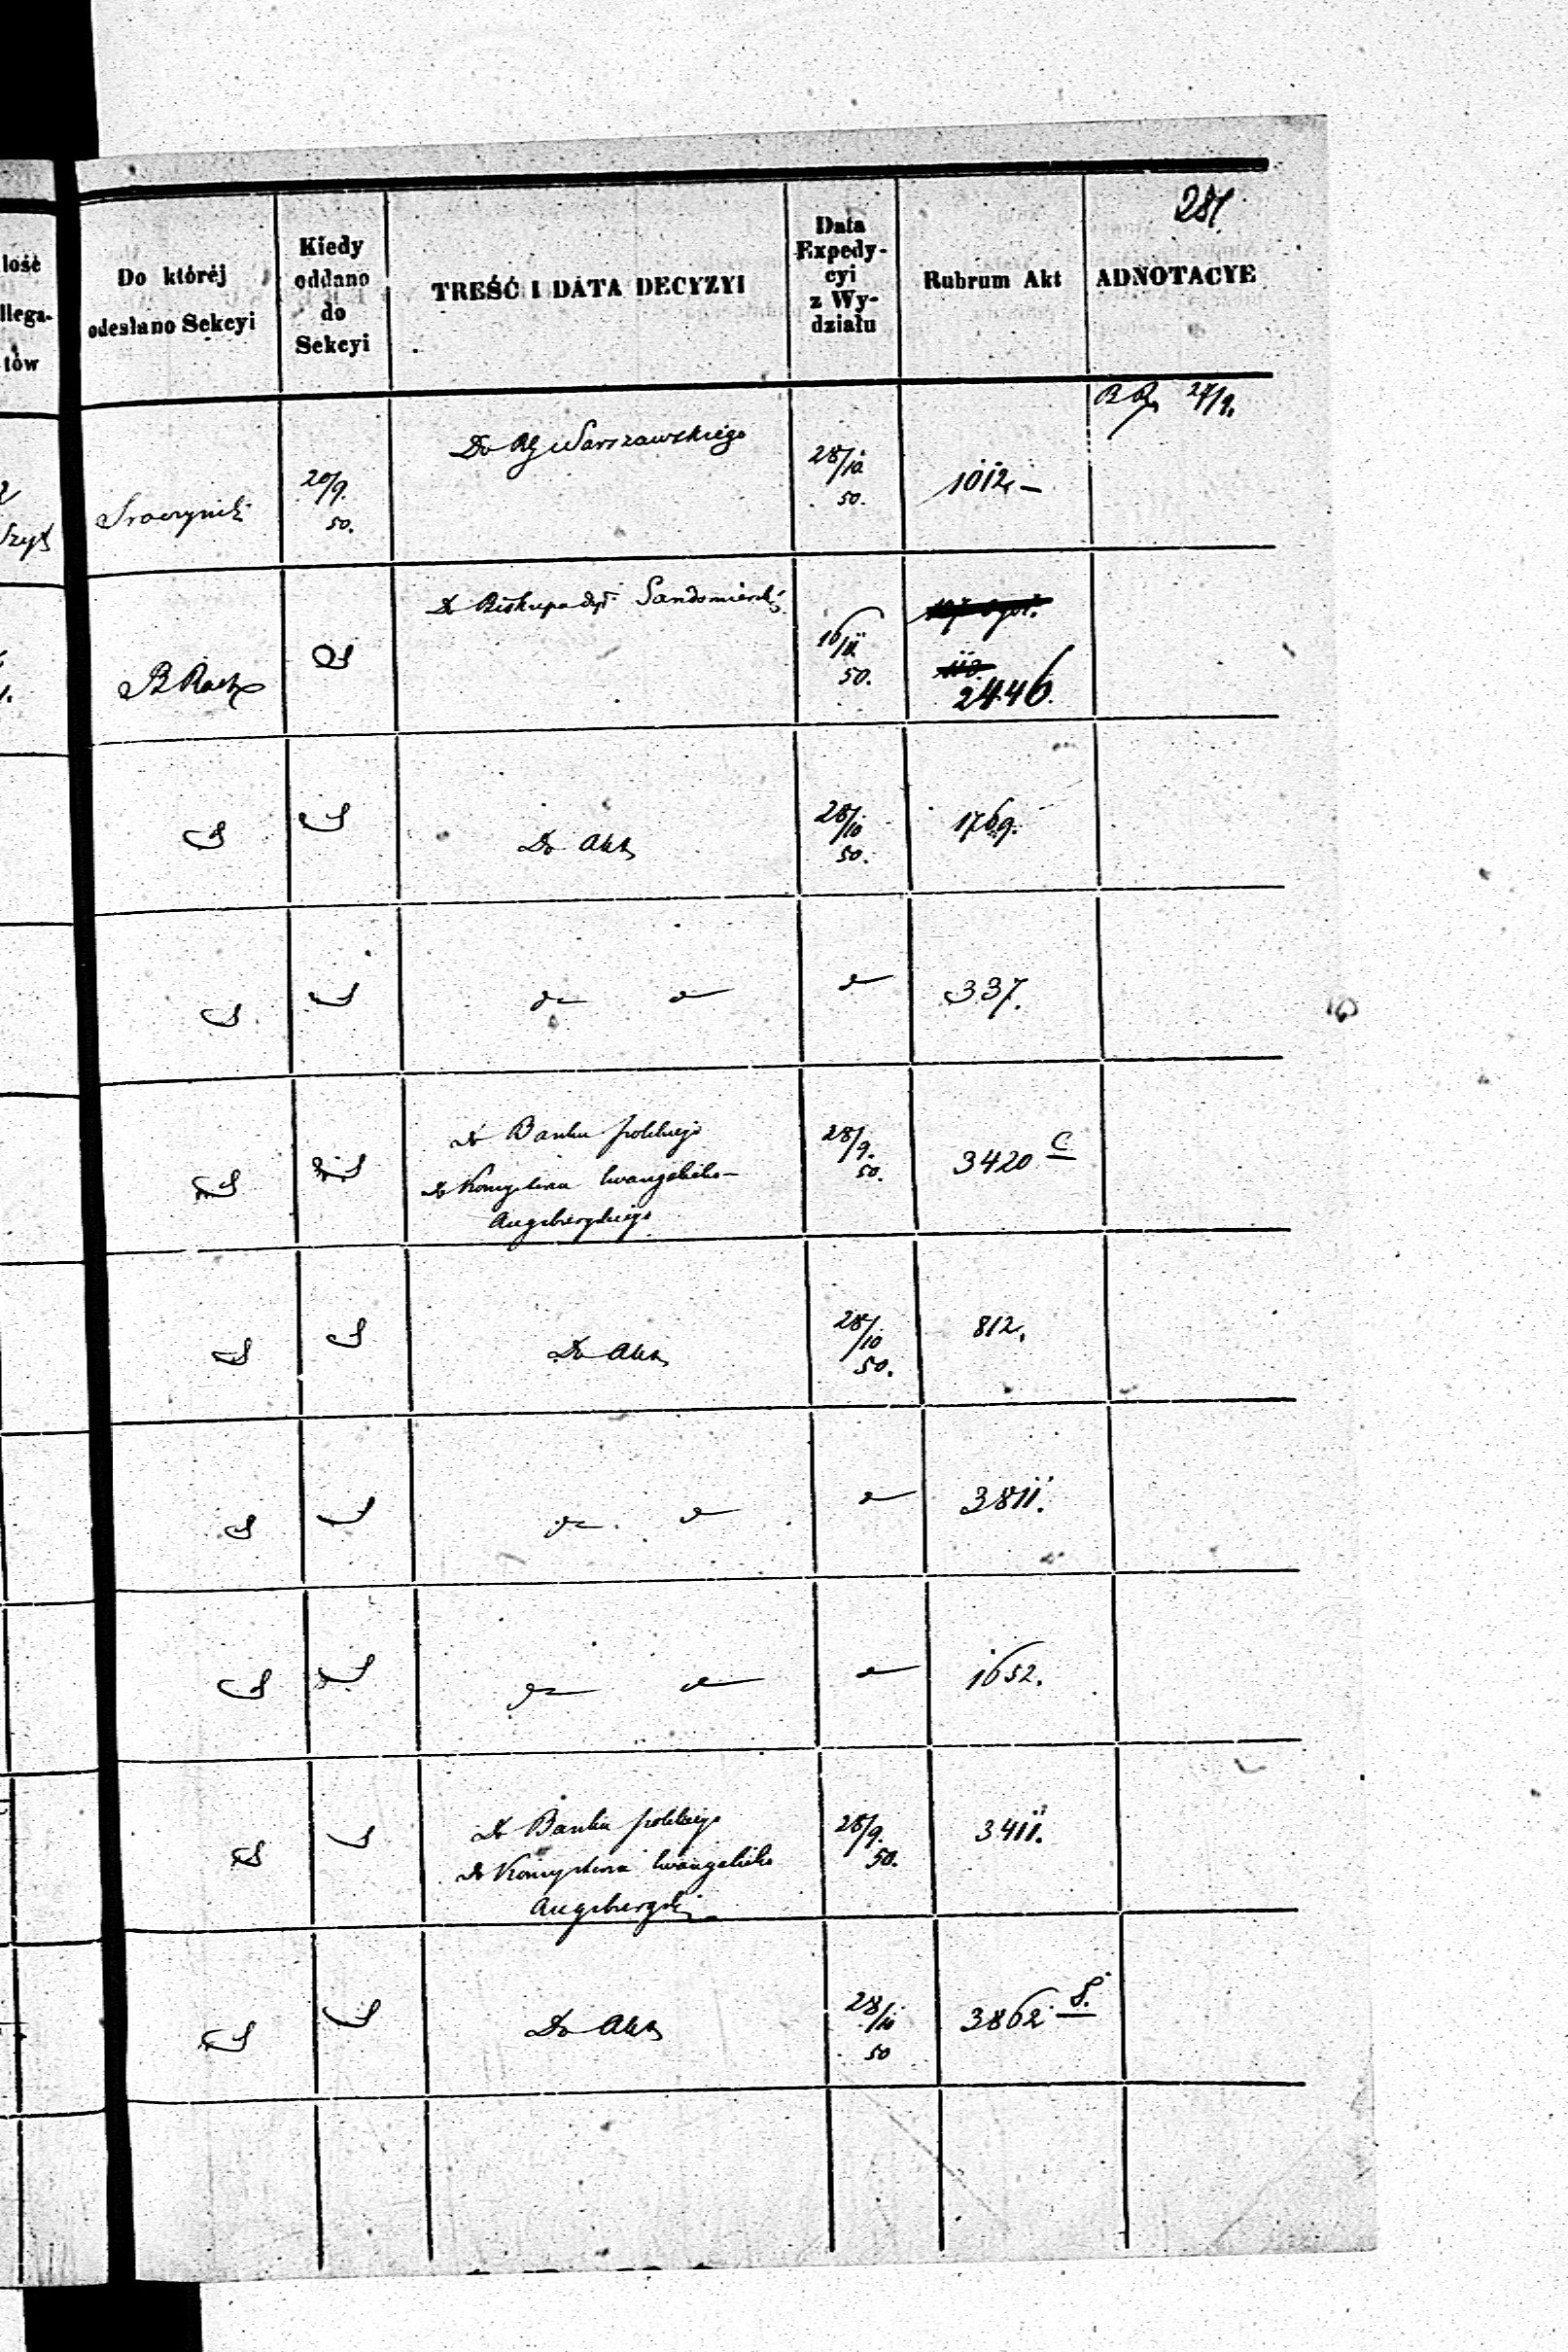 281.
lość
llega-
tów
Do któréj
odesłano Sekcyi
Kiedy
oddano
do
Sekcyi
TREŚĆ I DATA DECYZYI
Data
Expedy-
cyi
z Wy-
działu
Rubrum Akt
ADNOTACYE
27/9.
20/9.
50.
Do Rg Warszawskiego
28/10
50.
1012. –
B Radz
Do Biskupa dyec Sandomiersk.
16/11
50.
2446.
Do Akt
28/10
50.
1769.
337.
Do Banku polskiego
Do Konsystorza Ewangelicko–
Augsburgskiego
28/9.
50.
3420 C
Do Akt
28/10
50.
812.
3811.
1652.
Do Banku polskiego
Do Konsystorza Ewangelicko
Augsburgski
28/9.
50.
3411.
Do Akt
28/10
50
3862 S.